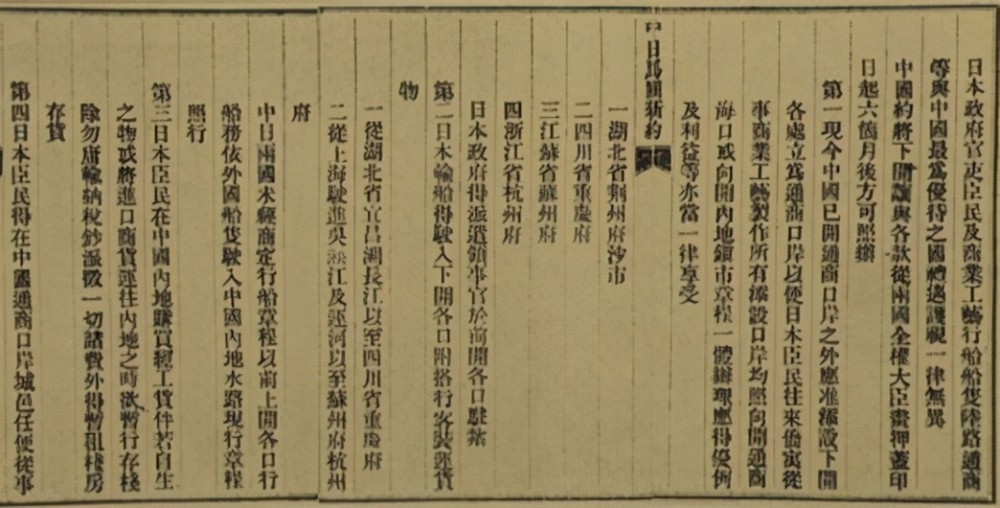 日本政府官吏臣民及商業工藝行船船隻陸路通商
等與中國最爲優待之國禮遇護視一律無異
中國約將下開讓與各款從兩國全權大臣畫押蓋印
日起六箇月後方可照辦
第一現今中國已開通商口岸之外應准添設下開
各處立爲通商口岸以便日本臣民往來僑寓從
事商業工藝製作所有添設口岸均照向開通商
海口或向開內地鎮市章程一體辦理應得優例
及利益等亦當一律享受
中日馬關新約
一湖北省荆州府沙市
二四川省重慶府
三江蘇省蘇州府
四浙江省杭州府
日本政府得派遣領事官於前開各口駐紮
第二日本輪船得駛入下開各口附搭行客裝運貨
物
一從湖北省宜昌溯長江以至四川省重慶府
二從上海駛進吳淞江及運河以至蘇州府杭州
府
中日兩國未經商定行船章程以前上開各口行
船務依外國船隻駛入中國內地水路現行章程
照行
第三日本臣民在中國內地購買經工貨件若自生
之物或將進口商貨運往內地之時欲暫行存棧
除勿庸輸納稅鈔派徵一切諸費外得暫租棧房
存貨
第四日本臣民得在中國通商口岸城邑任便從事